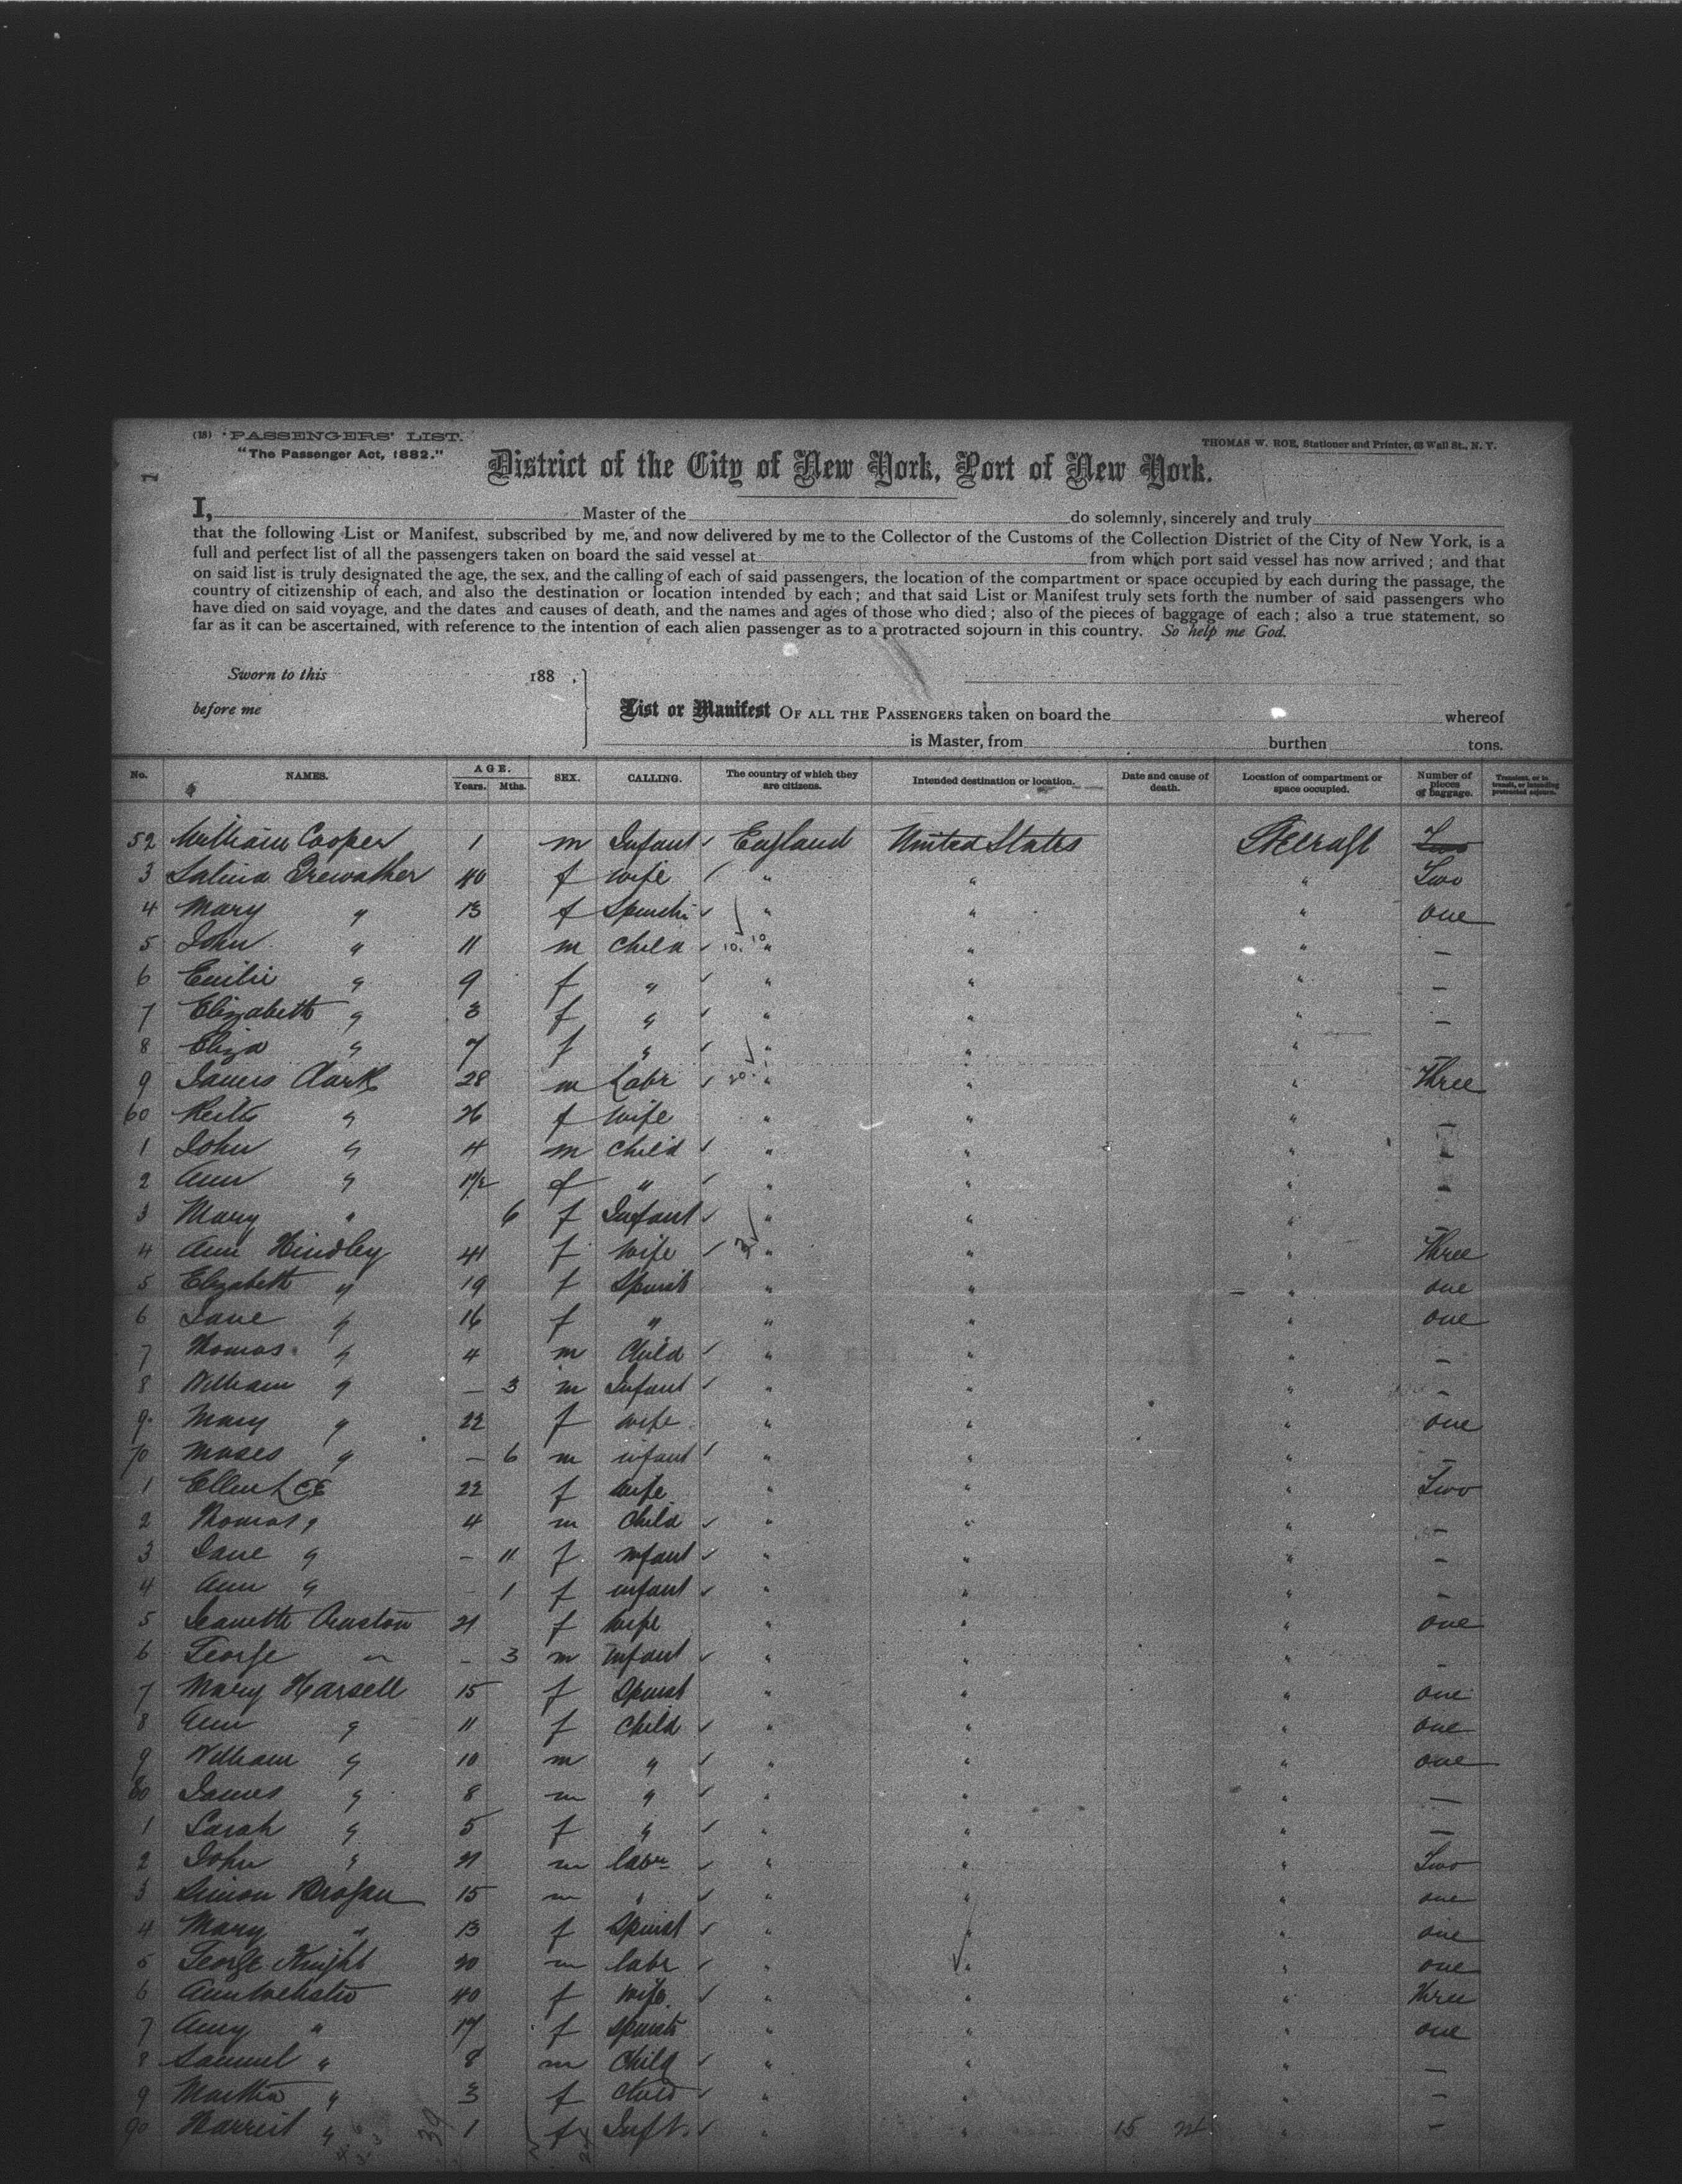 (18) PASSENGERS' LIST.
"The Passenger Act, 1882."
THOMAS W. ROE, Stationer and Printer, 63 Wall St., N. Y.
District of the City of New York, Port of New York.
I, Master of the do solemnly, sincerely and truly
that the following List or Manifest, subscribed by me, and now delivered by me to the Collector of the Customs of the Collection District of the City of New York, is a
full and perfect list of all the passengers taken on board the said vessel at from which port said vessel has now arrived; and that
on said list is truly designated the age, the sex, and the calling of each of said passengers, the location of the compartment or space occupied by each during the passage, the
country of citizenship of each, and also the destination or location intended by each; and that said List or Manifest truly sets forth the number of said passengers who
have died on said voyage, and the dates and causes of death, and the names and ages of those who died; also of the pieces of baggage of each; also a true statement, so
far as it can be ascertained, with reference to the intention of each alien passenger as to a protracted sojourn in this country. So help me God.
Sworn to this 188 .
before me
List or Manifest OF ALL THE PASSENGERS taken on board the whereof
is Master, from burthen tons.
No. NAMES. AGE. Years. Mths. SEX. CALLING. The country of which they are citizens. Intended destination or location. Date and cause of death. Location of compartment or space occupied. Number of pieces of baggage. Transient, or in transit, or intending protracted sojourn.
52 William Cooper 1 m Infant England United States Two
3 Salina Trewather 40 f wife " " " Two
4 Mary " 13 f " " " one
5 John " 11 m child " " " —
6 " 9 f " " " " —
7 Elizabeth " 3 f " " " " —
8 Eliza " 7 f " " " " —
9 James Clark 28 m Labr " " " Three
60 " 26 f wife " " " —
1 John " 4 m child " " " —
2 Ann " 1½ f " " " " —
3 Mary " 6 f Infant " " " —
4 Ann Hindley 41 f wife " " " Three
5 Elizabeth " 19 f Spinst " " " one
6 Jane " 16 f " " " " one
7 Thomas " 4 m Child " " " —
8 William " — 3 m Infant " " " —
9 Mary " 22 f wife " " " one
70 Moses " — 6 m infant " " " —
1 Ellen Lee 22 f wife " " " Two
2 Thomas " 4 m Child " " " —
3 Jane " — 11 f infant " " " —
4 Ann " — 1 f infant " " " —
5 Jeanette 21 f wife " " " one
6 George " — 3 m infant " " " —
7 Mary Harsell 15 f Spinst " " " one
8 Ann " 11 f child " " " one
9 William " 10 m " " " " one
80 James " 8 m " " " " —
1 Sarah " 5 f " " " " —
2 John " 21 m labr " " " Two
3 Simon Brogan 15 m " " " " one
4 Mary " 13 f Spinst " " " one
5 George Knight 20 m labr " " " one
6 Ann Webster 40 f wife " " " Three
7 Amy " 17 f spinst " " " one
8 Samuel " 8 m Child " " " —
9 Martha " 3 f Child " " " —
90 Harriet " 1 f Inft " " " —